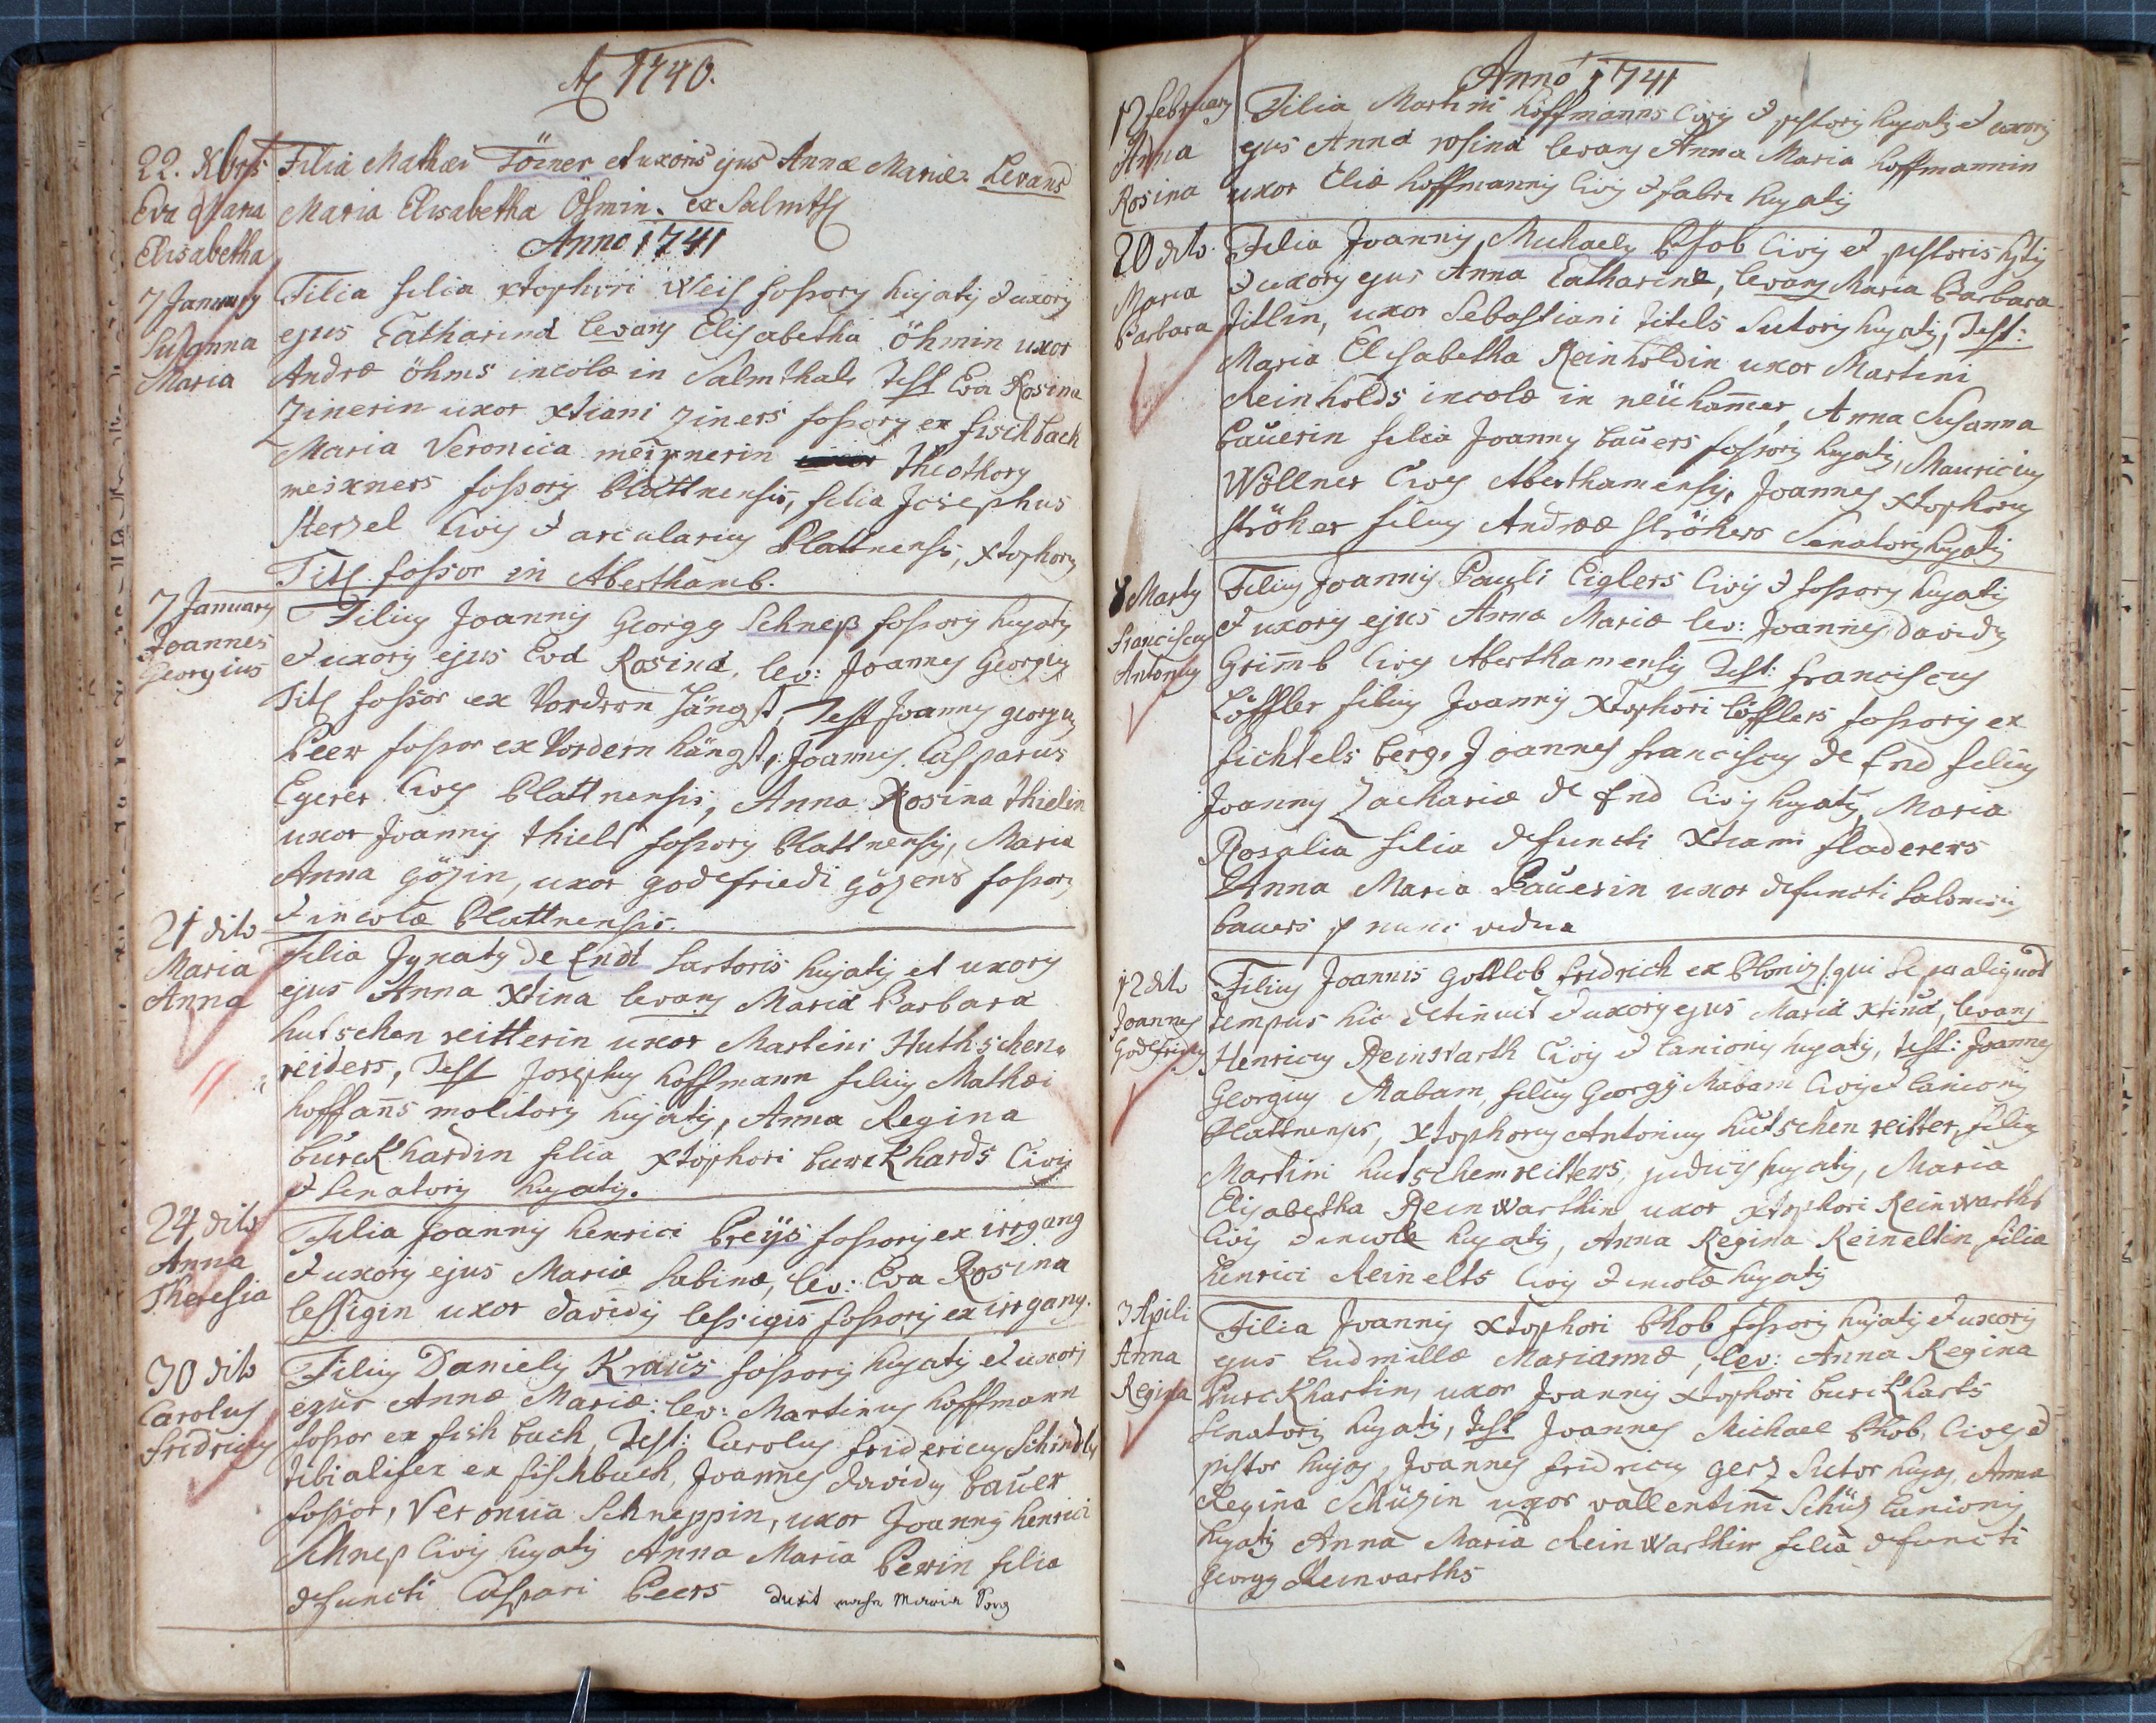 Ao 1740.
22. Xbris Filia Mathæi Törner et uxoris ejus Annæ Mariæ. Levans
Eva Maria Maria Elisabetha Öhmin. ex Salmthal
Elisabetha
Anno 1741
7 January Filia filia Xtophori Weis fossorÿ hujatÿ et uxorÿ
Susanna ejus Catharinâ levans Elisabetha öhmin uxor
Maria Andræ öhms incolæ in Salmthal Test Eva Rosina
Zinerin uxor Xtiani Ziners fossorÿ ex fischbach
Maria Veronica meixnerin Theothorÿ
meixners fossorÿ Blattnensis, filia Josephus
Herzel Civis et arcularius Blattnensis, Xtophorÿ
Titl fossor in Aberthamb.
7 January Filius Joannis Georgÿ Schneps fossorÿ hujatÿ
Joannes et uxorÿ ejus Eva Rosina, lev: Joannes Georgius
Georgius Titl fossor ex Vordern hängst, Test Joannes georgius
Peer fossor ex Vordern hängst, Joannes Casparus
Egerer Civis Blattnensis, Anna Rosina thielin
uxor Joannis thiels fossorÿ Blattnensis, Maria
Anna gözin, uxor godefriedi gözens fossorÿ
et incolæ Blattnensis.
21 dito Filia Ignatÿ De Endt Sartoris hujatis et uxoris
Maria ejus Anna Xtina levans Maria Barbara
Anna hutschenreitterin uxor Martini Huthschen
reiders, Test Josephus hoffmann filius Mathæi
hoffans molitorÿ hujatis, Anna Regina
burckhardin filia Xtophori burckhards Civis
et Senatorÿ hujatis.
24 dito Filia Joannis henrici Preÿs fossorÿ ex irrgang
Anna et uxorÿ ejus Mariæ Sabinæ, lev: Eva Rosina
Theresia lessigin uxor davidis lessigis fossorÿ ex irrgang.
30 dito Filius Danielis Kraus fossorÿ hujatis et uxorÿ
Carolus ejus Annæ Mariæ: lev: Martinus hoffmann
fridricus fossor ex fishbach, Test: Carolus fridericus Schindler
tibialifex ex fischbach, Joannes davidus bauer
fossor, Veronica Schneppin, uxor Joannis henrici
Schnep Civis hujatis Anna Maria Peerin filia
defuncti Caspari Peers duxit Maria
Anno 1741
12 february Filia Martini hoffmanns Civis et pistorÿ hujatis et uxorÿ
Anna ejus Anna rosina levans Anna Maria hoffmannin
Rosina uxor Eliæ hoffmannÿ Civis et fabri hujatis
20 dito Filia Joannis Michaelis Phob Civis et pistoris hjtis
Maria et uxorÿ ejus Anna Catharinæ, levans Maria Barbara
Barbara titlin, uxor Sebastiani titels Sutorÿ hujatis, Test:
Maria Elisabetha Reinholdin uxor Martini
Reinholds incolæ in neühamer, Anna Susanna
bauerin filia Joannis bauers fossorÿ hujatis, Mauricius
Wöllner Civis Aberthamensis, Joannes Xtophorus
ströher filius Andreæ ströhers Senatorÿ hujatis
8 Marty Filius Joannis Pauli Eiglers Civis et fossorÿ hujatis
franciscus et uxorÿ ejus Anna Mariæ lev: Joannes davidus
Antonius Grimb Civis Aberthamensis Test: franciscus
Löffler filius Joannis Xtophori löfflers fossorÿ ex
fichtelsberg, Joannes franciscus de End filius
Joannis Zachariæ de End Civis hujatis, Maria
Rosalia filia defuncti Xtiani fladerers
Anna Maria Bauerin uxor defuncti Salomonis
bauers p nunc vidua
12 dito Filius Joannis Gottlob fridrich ex Bloniz: qui se per aliquod
Joannes tempus hic detinuit et uxorÿ ejus Maria Xtinâ, levans
Godefridus Henricus Reinwarth Civis et lanionis hujatis, Test: Joannes
Georgius Mabam, filius Georgÿ Mabam Civis et lanionis
Blattnensis, Xtophorus Antonius hutschenreitter, filius
Martini hutschenreitters judicis hujatis, Maria
Elisabetha Reinwarthin uxor Xtophori Reinwarths
Civis et incolæ hujatis, Anna Regina Reineltin filia
henrici Reinelts Civis et incolæ hujatis
3 Aprili Filia Joannis Xtophori Phob fossorÿ hujatis et uxorÿ
Anna ejus ludmillæ Mariannæ, lev: Anna Regina
Regina Purckhartin, uxor Joannis Xtophori burckharts
Senatorÿ hujatis, Test Joannes Michael Phob, Civis et
pistor hujas, Joannes fridricus gerz Sutor hujas, Anna
Regina Schüzin uxor vallentini Schüz lanionis
hujatis Anna Maria Reinwarthin filia defuncti
Georgÿ Reinwarths